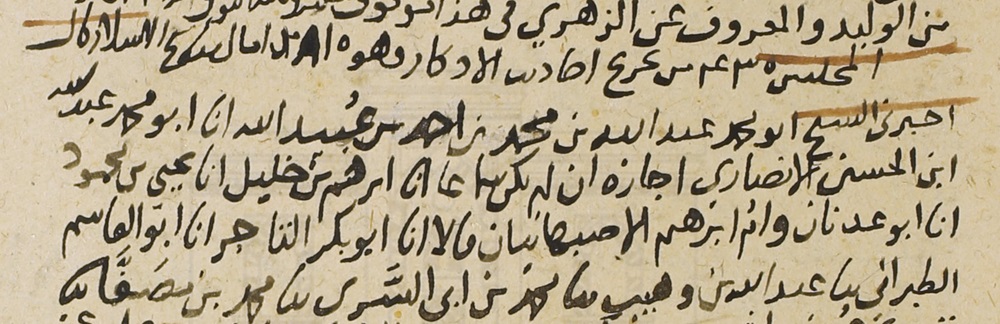 من الوليد والمعروف عن الزهري في هذا
المجلس ٤٣٠ من تخريج احاديث الاذكار وهو امال شيخ الاسلام
اخبرني الشيخ ابو محمد عبد الله بن محمد بن احمد بن عُبيد الله انا ابو محمد عبد الله
ابن الحسين الانصاري اجازه ان لم يكن سماعا انا ابرهيم بن خليل انا يحيى بن محمود
انا ابو عدنان وام ابرهيم الاصبهانيان قالا انا ابو بكر التاجر انا ابو القاسم
الطبراني ثنا عبد الله بن وهيب ثنا محمد بن ابي السَّري ثنا محمد بن مصَفَّا ثنا